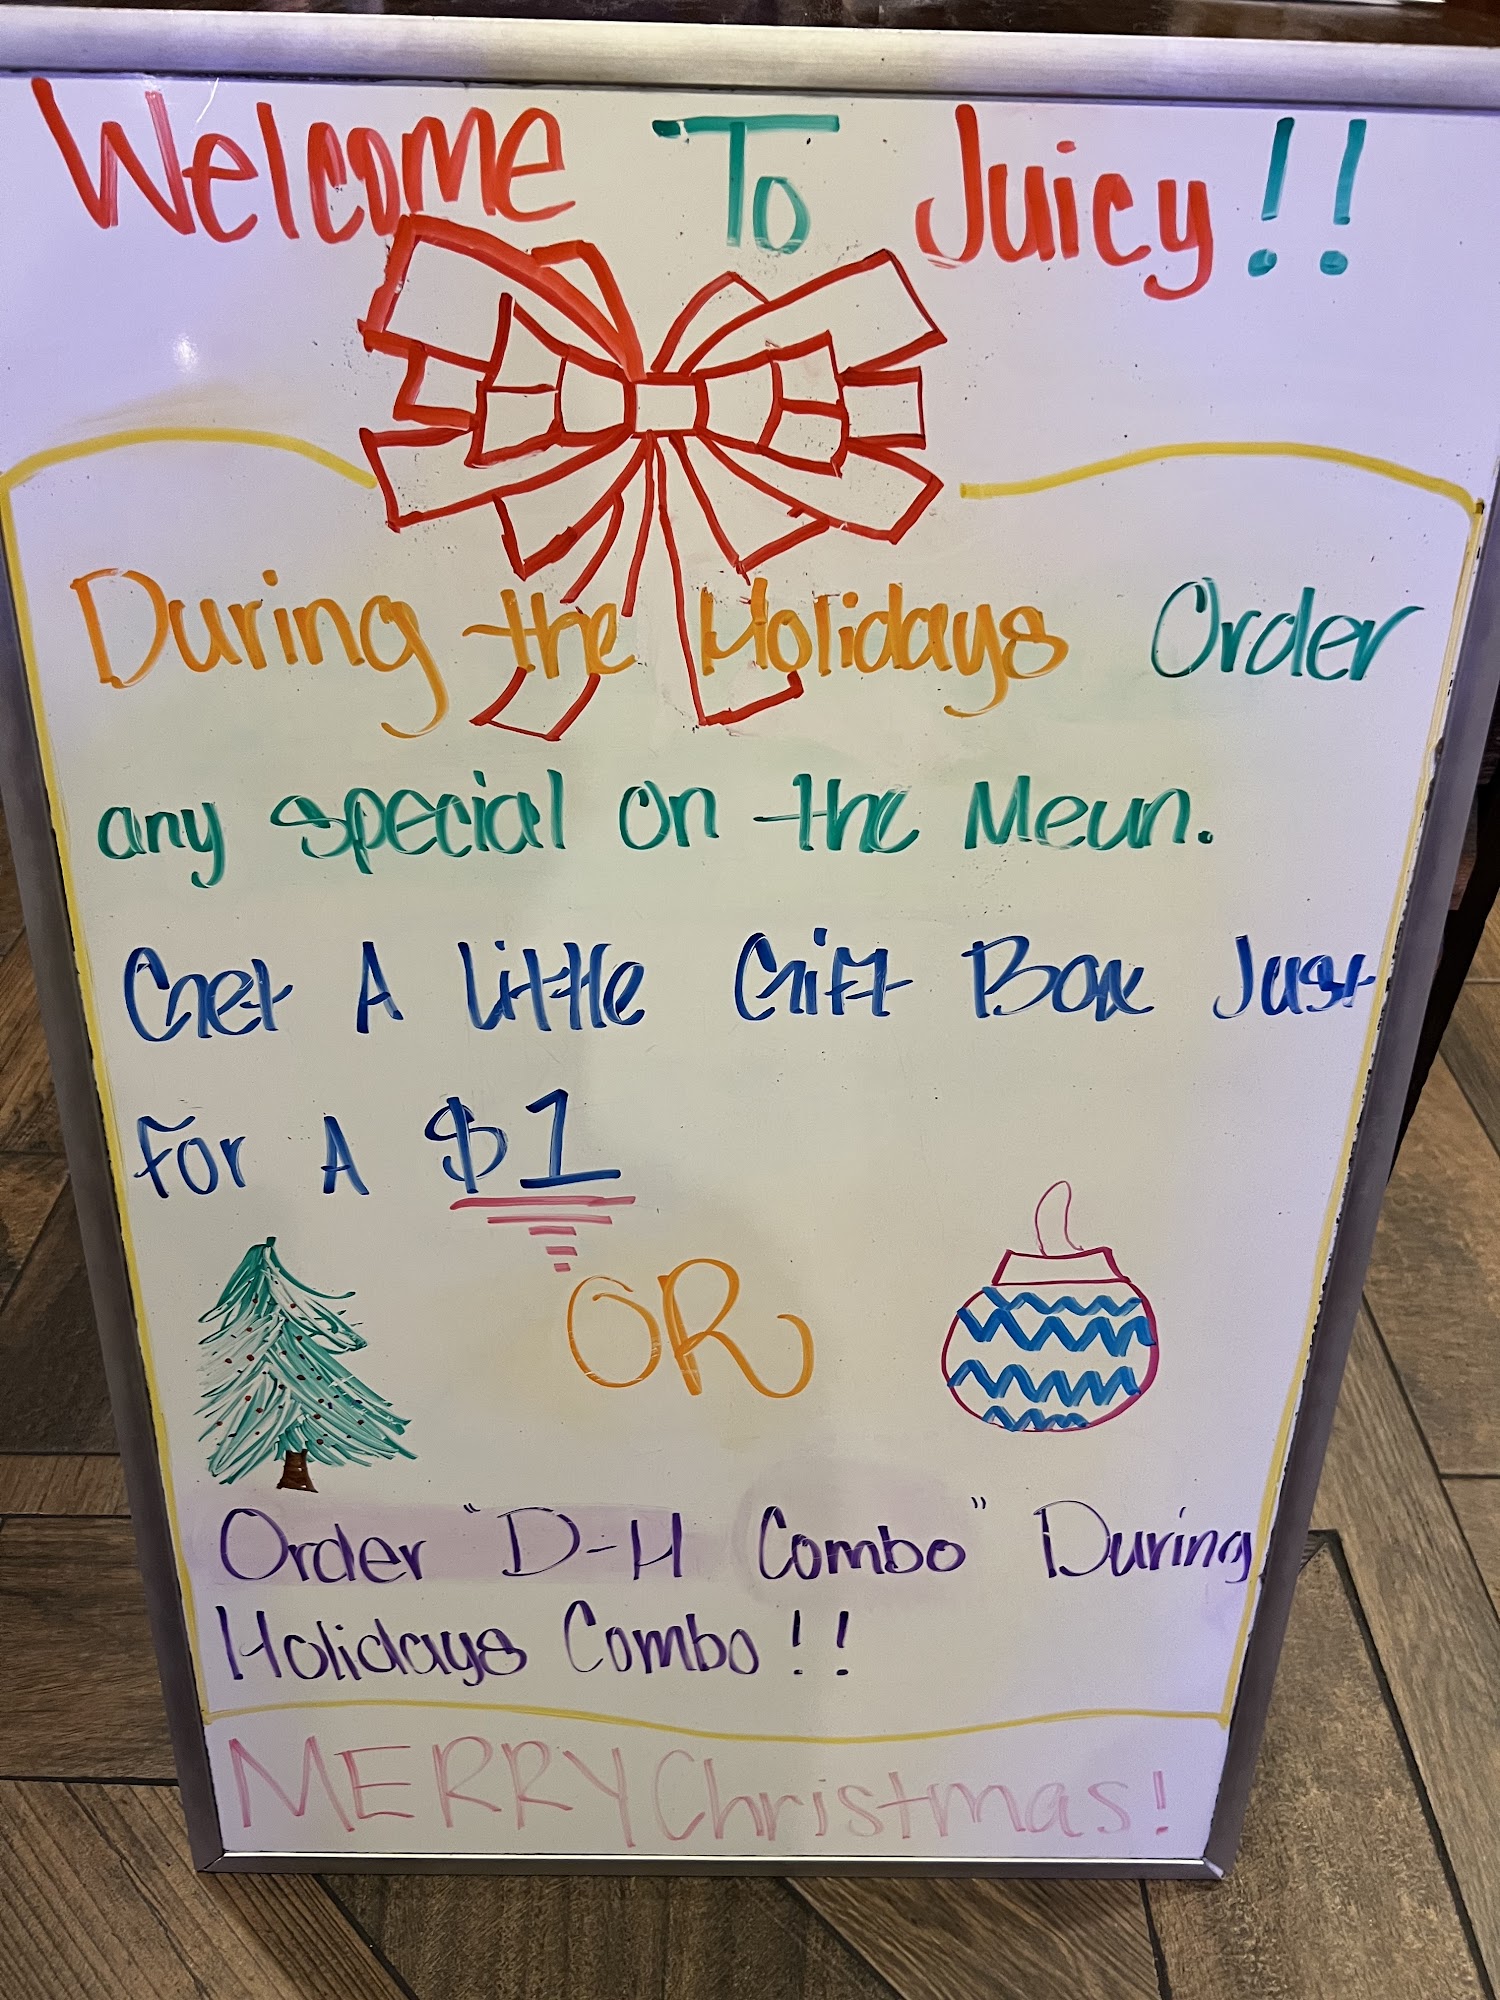 Welcome To Juicy!!
During the Holidays Order
any special on the Meun.
Get A Little Gift Box Just
For A $1
OR
Order "D-H Combo" During
Holidays Combo!!
MERRY Christmas!